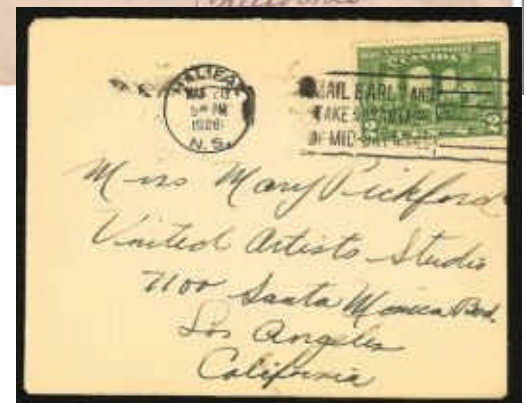 HALIFAX
MAR 20
5 PM
1928
N.S.
MAIL EARLY AND
TAKE
OF MID-DAY
CANADA
2 2
Miss Mary Pickford
United Artists Studio
7100 Santa Monica Bvd.
Los Angeles
California